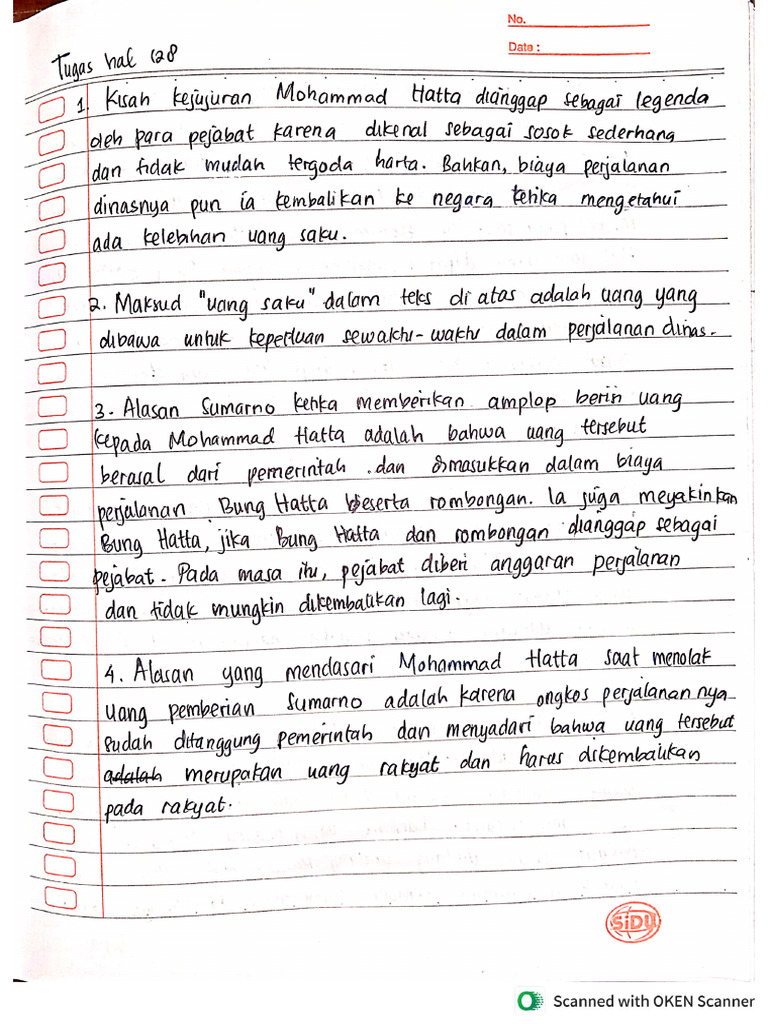 No.
Date :
Tugas hal 128
1. Kisah kejujuran Mohammad Hatta dianggap sebagai legenda
oleh para pejabat karena dikenal sebagai sosok sederhana
dan tidak mudah tergoda harta. Bahkan, biaya perjalanan
dinasnya pun ia kembalikan ke negara ketika mengetahui
ada kelebihan uang saku.
2. Maksud "uang saku" dalam teks di atas adalah uang yang
dibawa untuk keperluan sewaktu-waktu dalam perjalanan dinas.
3. Alasan Sumarno ketika memberikan amplop berisi uang
kepada Mohammad Hatta adalah bahwa uang tersebut
berasal dari pemerintah dan dimasukkan dalam biaya
perjalanan Bung Hatta beserta rombongan. Ia juga meyakinkan
Bung Hatta, jika Bung Hatta dan rombongan dianggap sebagai
pejabat. Pada masa itu, pejabat diberi anggaran perjalanan
dan tidak mungkin dikembalikan lagi.
4. Alasan yang mendasari Mohammad Hatta saat menolak
uang pemberian Sumarno adalah karena ongkos perjalanan nya
sudah ditanggung pemerintah dan menyadari bahwa uang tersebut
adalah merupakan uang rakyat dan harus dikembalikan
pada rakyat.
SiDU
Scanned with OKEN Scanner